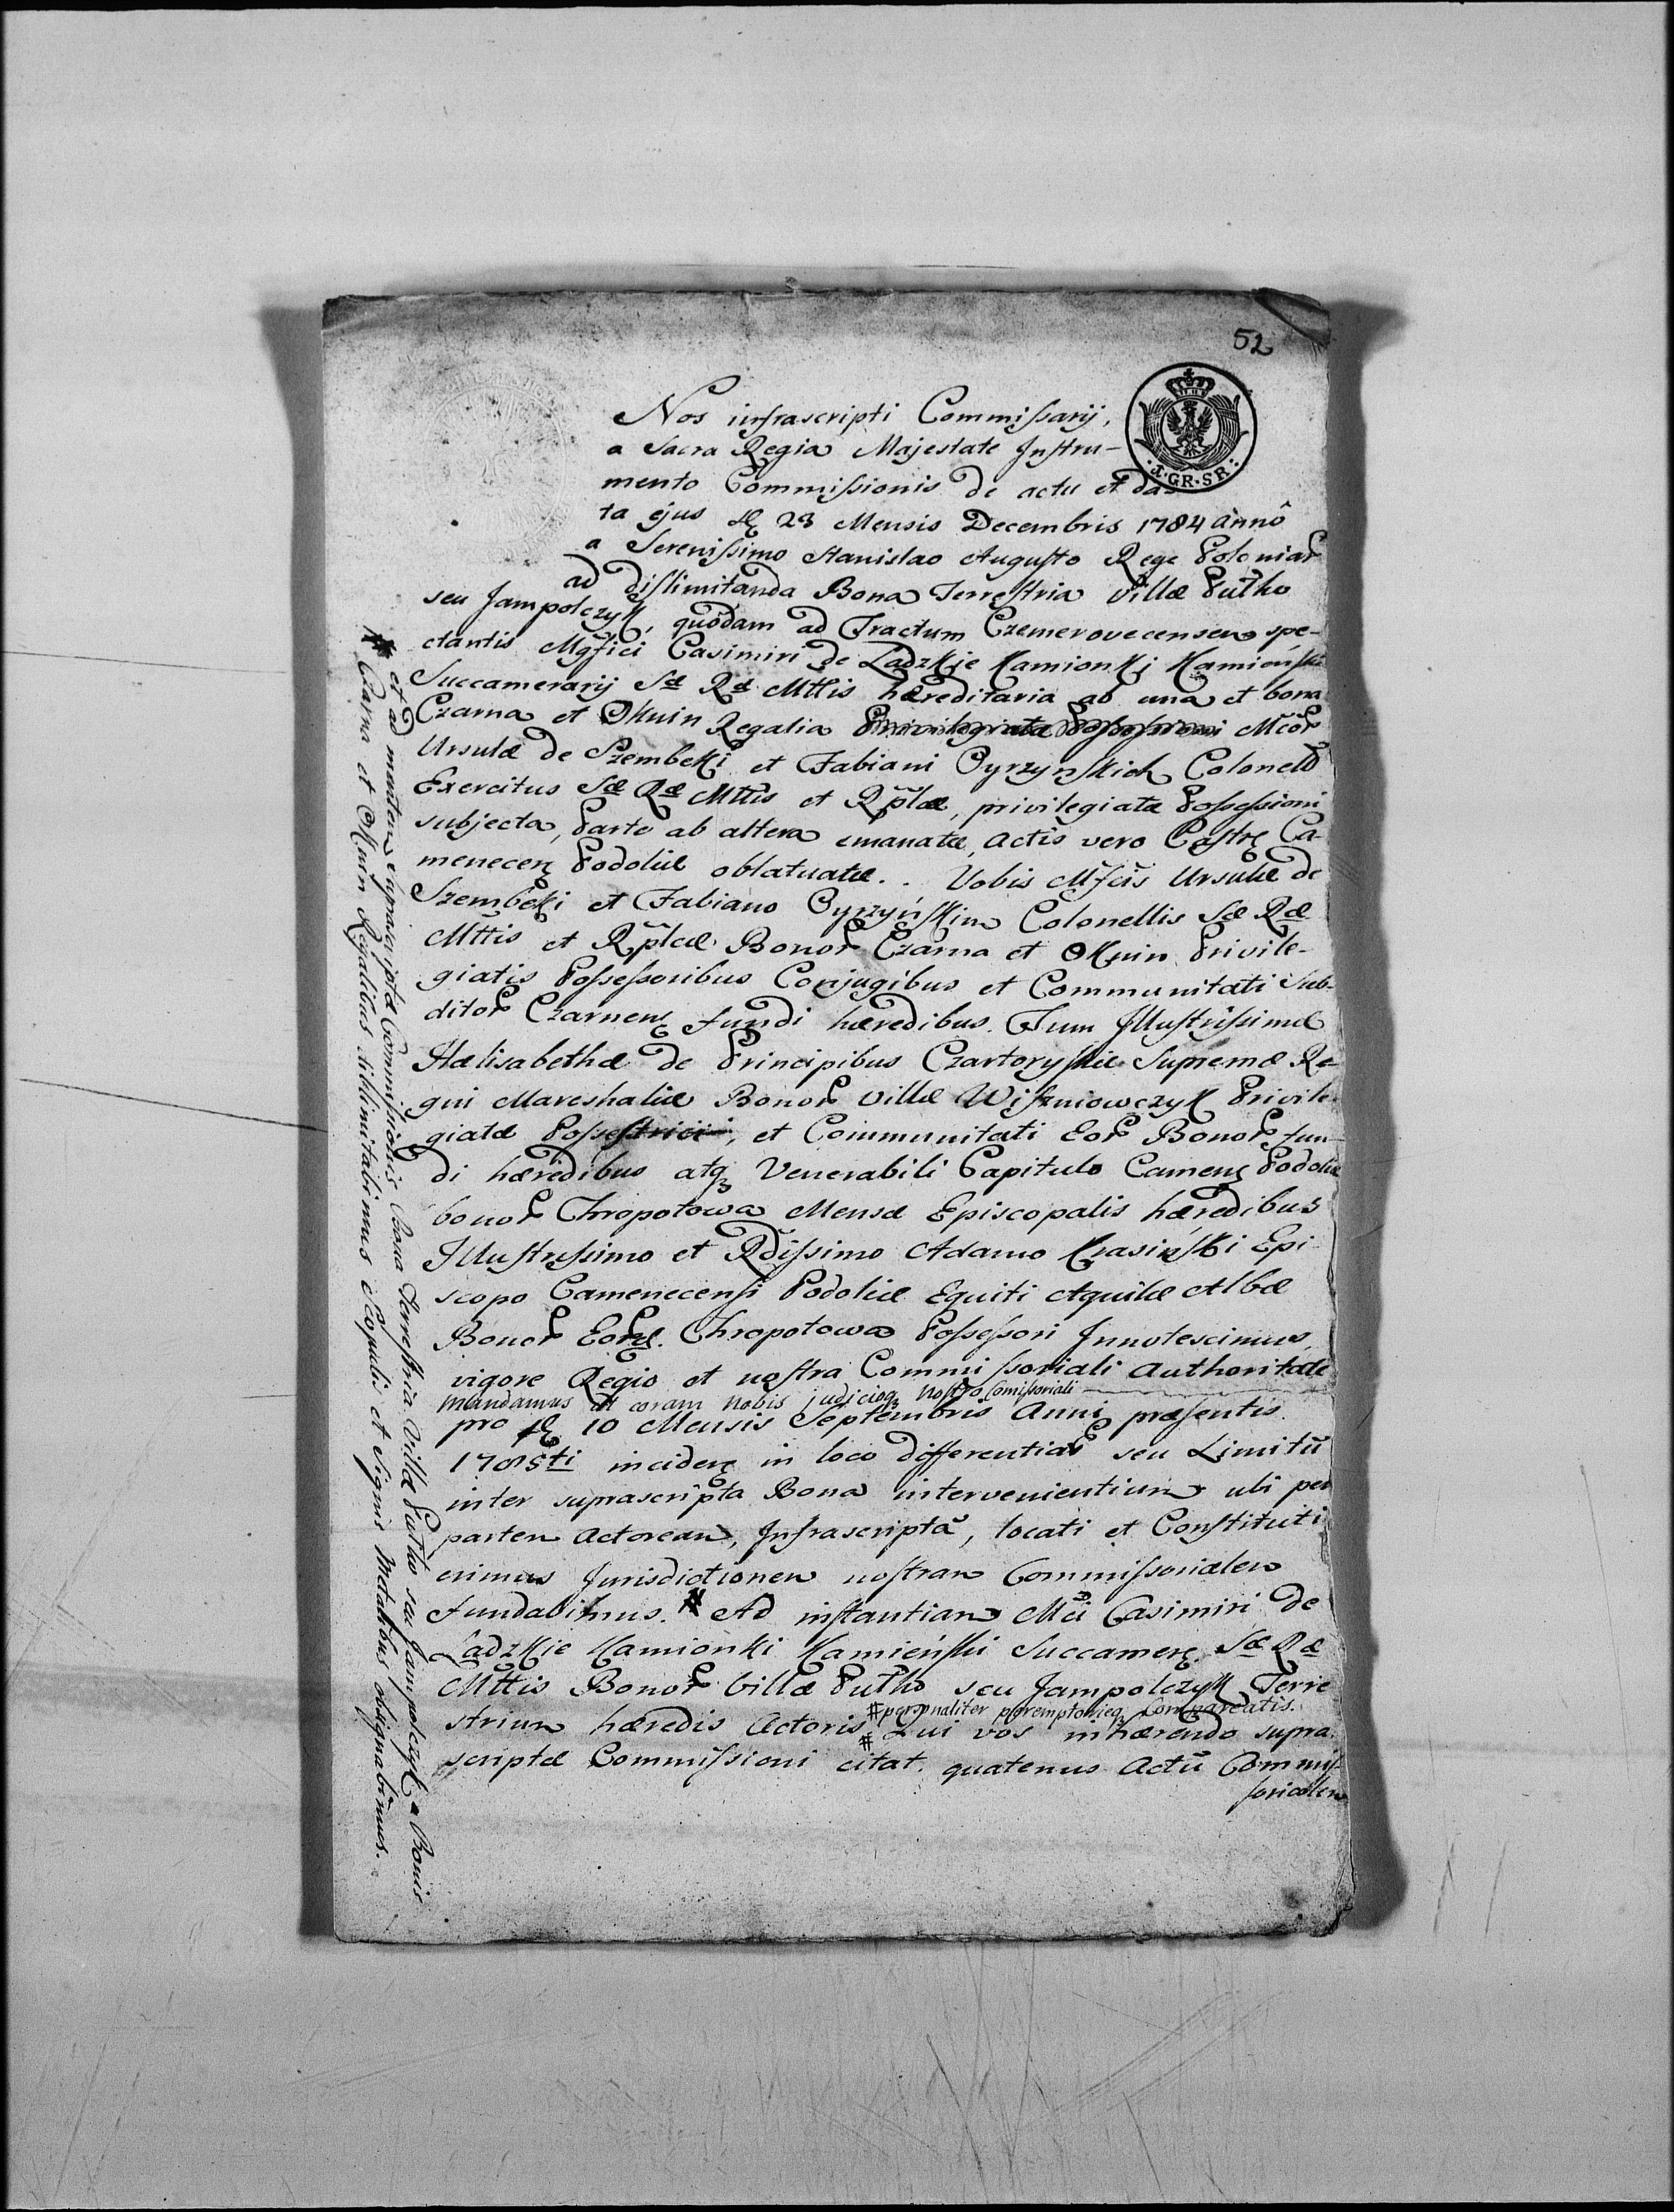 52
Nos infrascripti Commissarij,
a Sacra Regia Majestate Instru-
mento Commissionis de actu et da-
ta ejus 23 Mensis Decembris 1784 annô
a Serenissimo Stanislao Augusto Rege Poloniar
ad dislimitanda Bona Terrestria Villæ Putho
seu Jampolczyk, quodam ad Tractum Czemerovecensem spe-
ctantis Mgfici Casimiri de Ladzkje Kamionki Kamieński
Succamerarij Sæ Ræ Mttis hæreditaria ab una et bona
Czarna et Okuin Regalia Privilegiata Possessioni Mcor
Ursulæ de Szembeki et Fabiani Pyrzynskich Colonell
Exercitus Sæ Ræ Mttis et Rplæ, privilegiatæ Possessioni
subjecta, Parte ab altera emanatæ, actis vero Castr Ca-
menecen Podoliæ oblatuatæ. Vobis Mfcis Ursulæ de
Szembeki et Fabiano Pyrzyńskim Colonellis Sæ Ræ
Mttis et Rplcæ Bonor Czarna et Okuin Privile-
giatis Possessoribus Conjugibus et Communitati Sub-
ditor Czarnen fundi hæredibus. Tum Illustrissimæ
Hælisabethæ de Principibus Czartoryskie Supremæ Re-
gni Mareshaliæ Bonor Villæ Wiszniowczyk Privile-
giatæ Possestrici, et Communitati Eor Bonor fun-
di hæredibus atq Venerabili Capitulo Camen Podoliæ
bonor Chropotowa Mensæ Episcopalis hæredibus
Illustrissimo et Rdissimo Adamo Krasiński Epi-
scopo Camenecensi Podoliæ Equiti Aquilæ Albæ
Bonor Eor Chropotowa Possessori Innotescimus,
vigore Regio et nostra Commissoriali Authoritate
mandamus ut coram Nobis judicioq Nostro Comissoriali
pro 10 Mensis Septembris Anni præsentis
1785ti inciden in loco differentiar seu Limitū
inter suprascripta Bona intervenientium ubi per
partem Actoream, Infrascriptā, locati et Constituti
erimus Jurisdictionem nostram Commissorialem
fundabimus. # Ad instantiam Mci Casimiri de
Ladzkie Kamionki Kamieński Succamer Sæ Ræ
Mttis Bonor Villæ Putho seu Jampolczyk Terre
strium hæredis Actoris # personaliter peremptorieq Compareatis.
# Qui vos inhærendo supra
scriptæ Commissioni citat. quatenus Actū Commis-
sorialem
# et ad mentem suprascriptæ Commissionis Bona Terrestria Villæ Putho seu Jampolczyk a Bonis
Czarna et Okuin Regalibus dislimitabimus Scopulis et Signis Metalibus obsignabimus.
I.GR.SR.